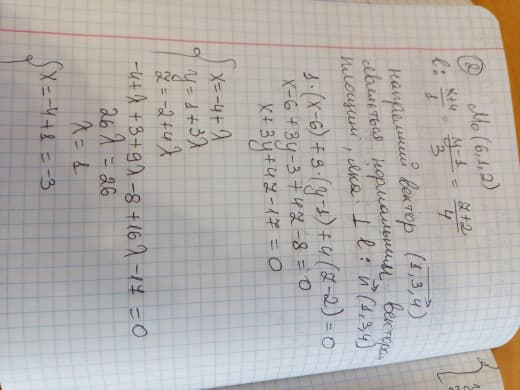 ② M₀(6,1,2)
l: x+4/1 = y-1/3 = z+2/4
напрямний вектор (1,3,4)
являється нормальним вектора
площині, яка ⊥ l: n(1,3,4)
1·(x-6)+3·(y-1)+4(z-2)=0
x-6+3y-3+4z-8=0
x+3y+4z-17=0
x=-4+λ
y=1+3λ
z=-2+4λ
-4+λ+3+9λ-8+16λ-17=0
26λ=26
λ=1
x=-4+1=-3